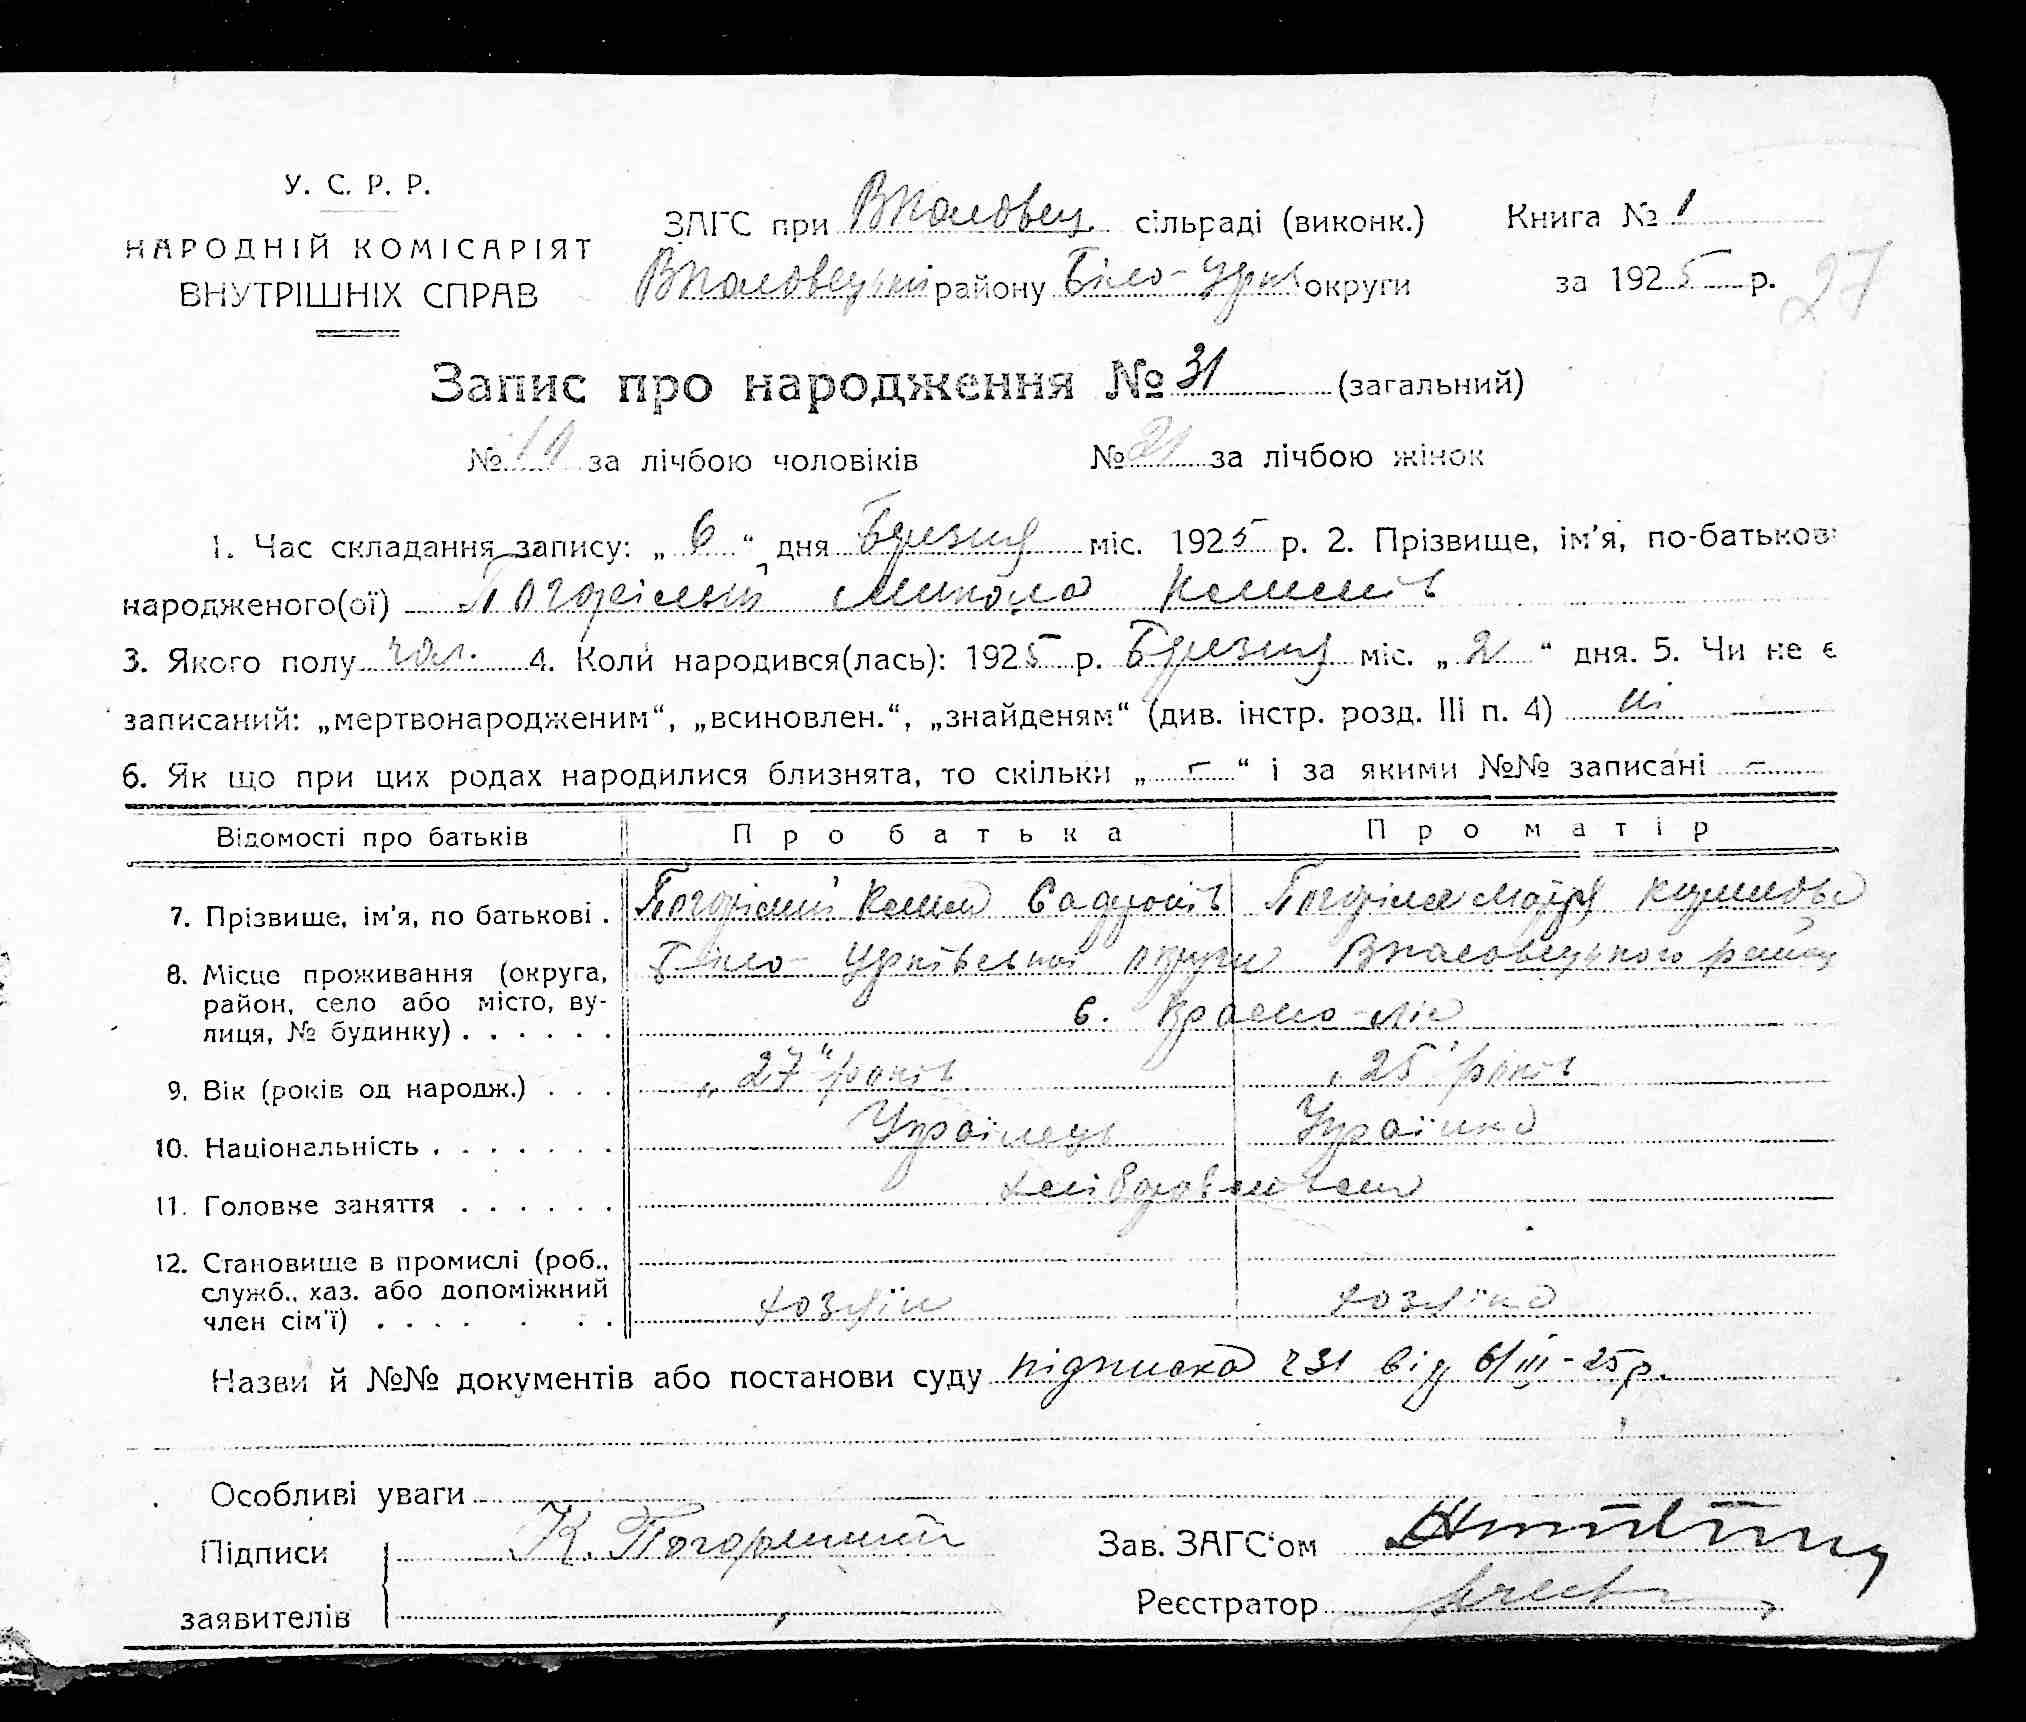 У. С. Р. Р.
НАРОДНІЙ КОМІСАРІЯТ
ВНУТРІШНІХ СПРАВ
ЗАГС при сільраді (виконк.)
району Біло-Црків округи
Книга № 1
за 1925 р.
27
Запис про народження № 31 (загальний)
№ за лічбою чоловіків № 21 за лічбою жінок
1. Час складання запису: „ 6 “ дня Березня міс. 1925 р. 2. Прізвище, ім'я, по-батькові
народженого(ої) Погорілий Микола
3. Якого полу чол. 4. Коли народився(лась): 1925 р. Березня міс. „ 2 “ дня. 5. Чи не є
записаний: „мертвонародженим“, „всиновлен.“, „знайденям“ (див. інстр. розд. III п. 4) ні
6. Як що при цих родах народилися близнята, то скільки „ – “ і за якими №№ записані –
Відомості про батьків Про батька Про матір
7. Прізвище, ім'я, по батькові . Погорілий
8. Місце проживання (округа, Біло-Црківської округи району
район, село або місто, ву- с. Красно-
лиця, № будинку) . . . . . .
9. Вік (років од народж.) . . . „27“ років „25“ років
10. Національність . . . . . . . Українець Українка
11. Головне заняття . . . . . .
12. Становище в промислі (роб.,
служб., хаз. або допоміжний хозяїн хозяїка
член сім'ї) . . . . . . .
Назви й №№ документів або постанови суду підписка ч 31 від 6/III-25 р.
Особливі уваги
Підписи К. Погорилий Зав. ЗАГС'ом
заявителів Реєстратор